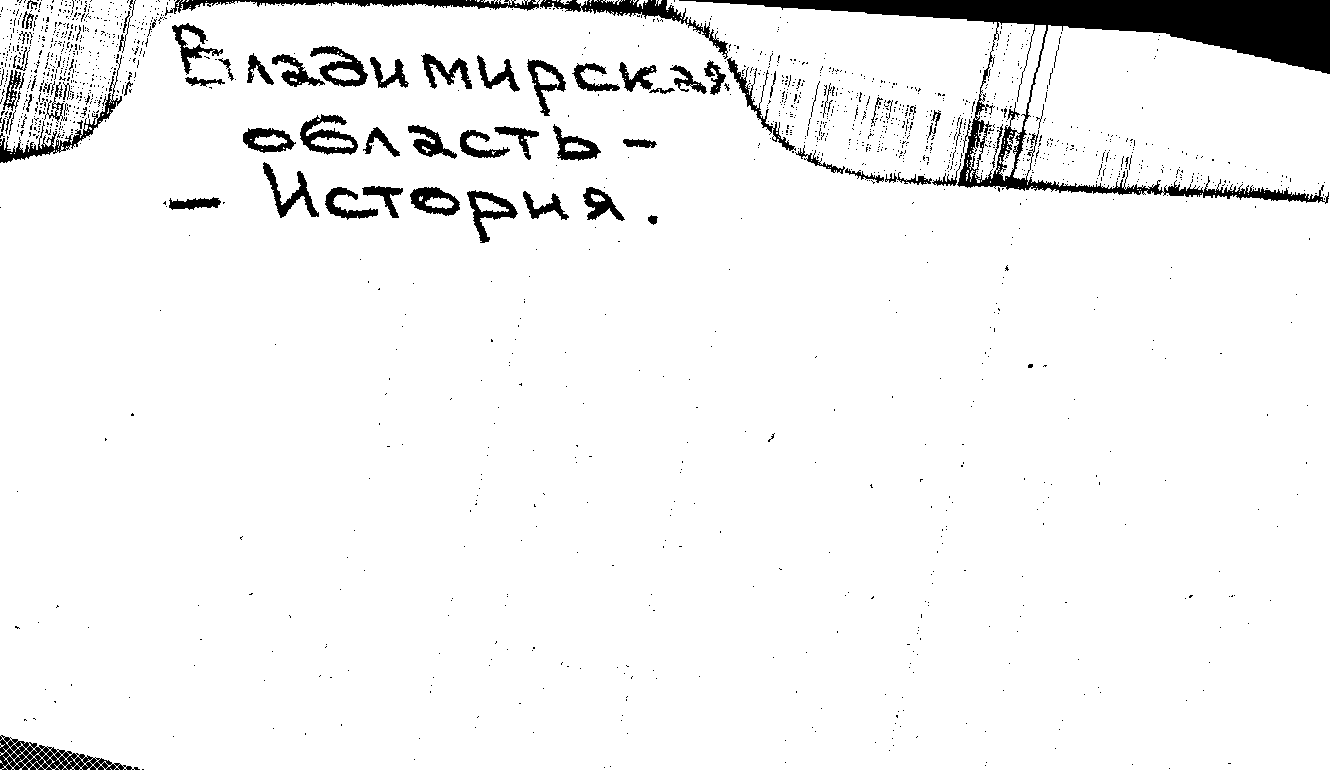 Владимирская
область -
- История.